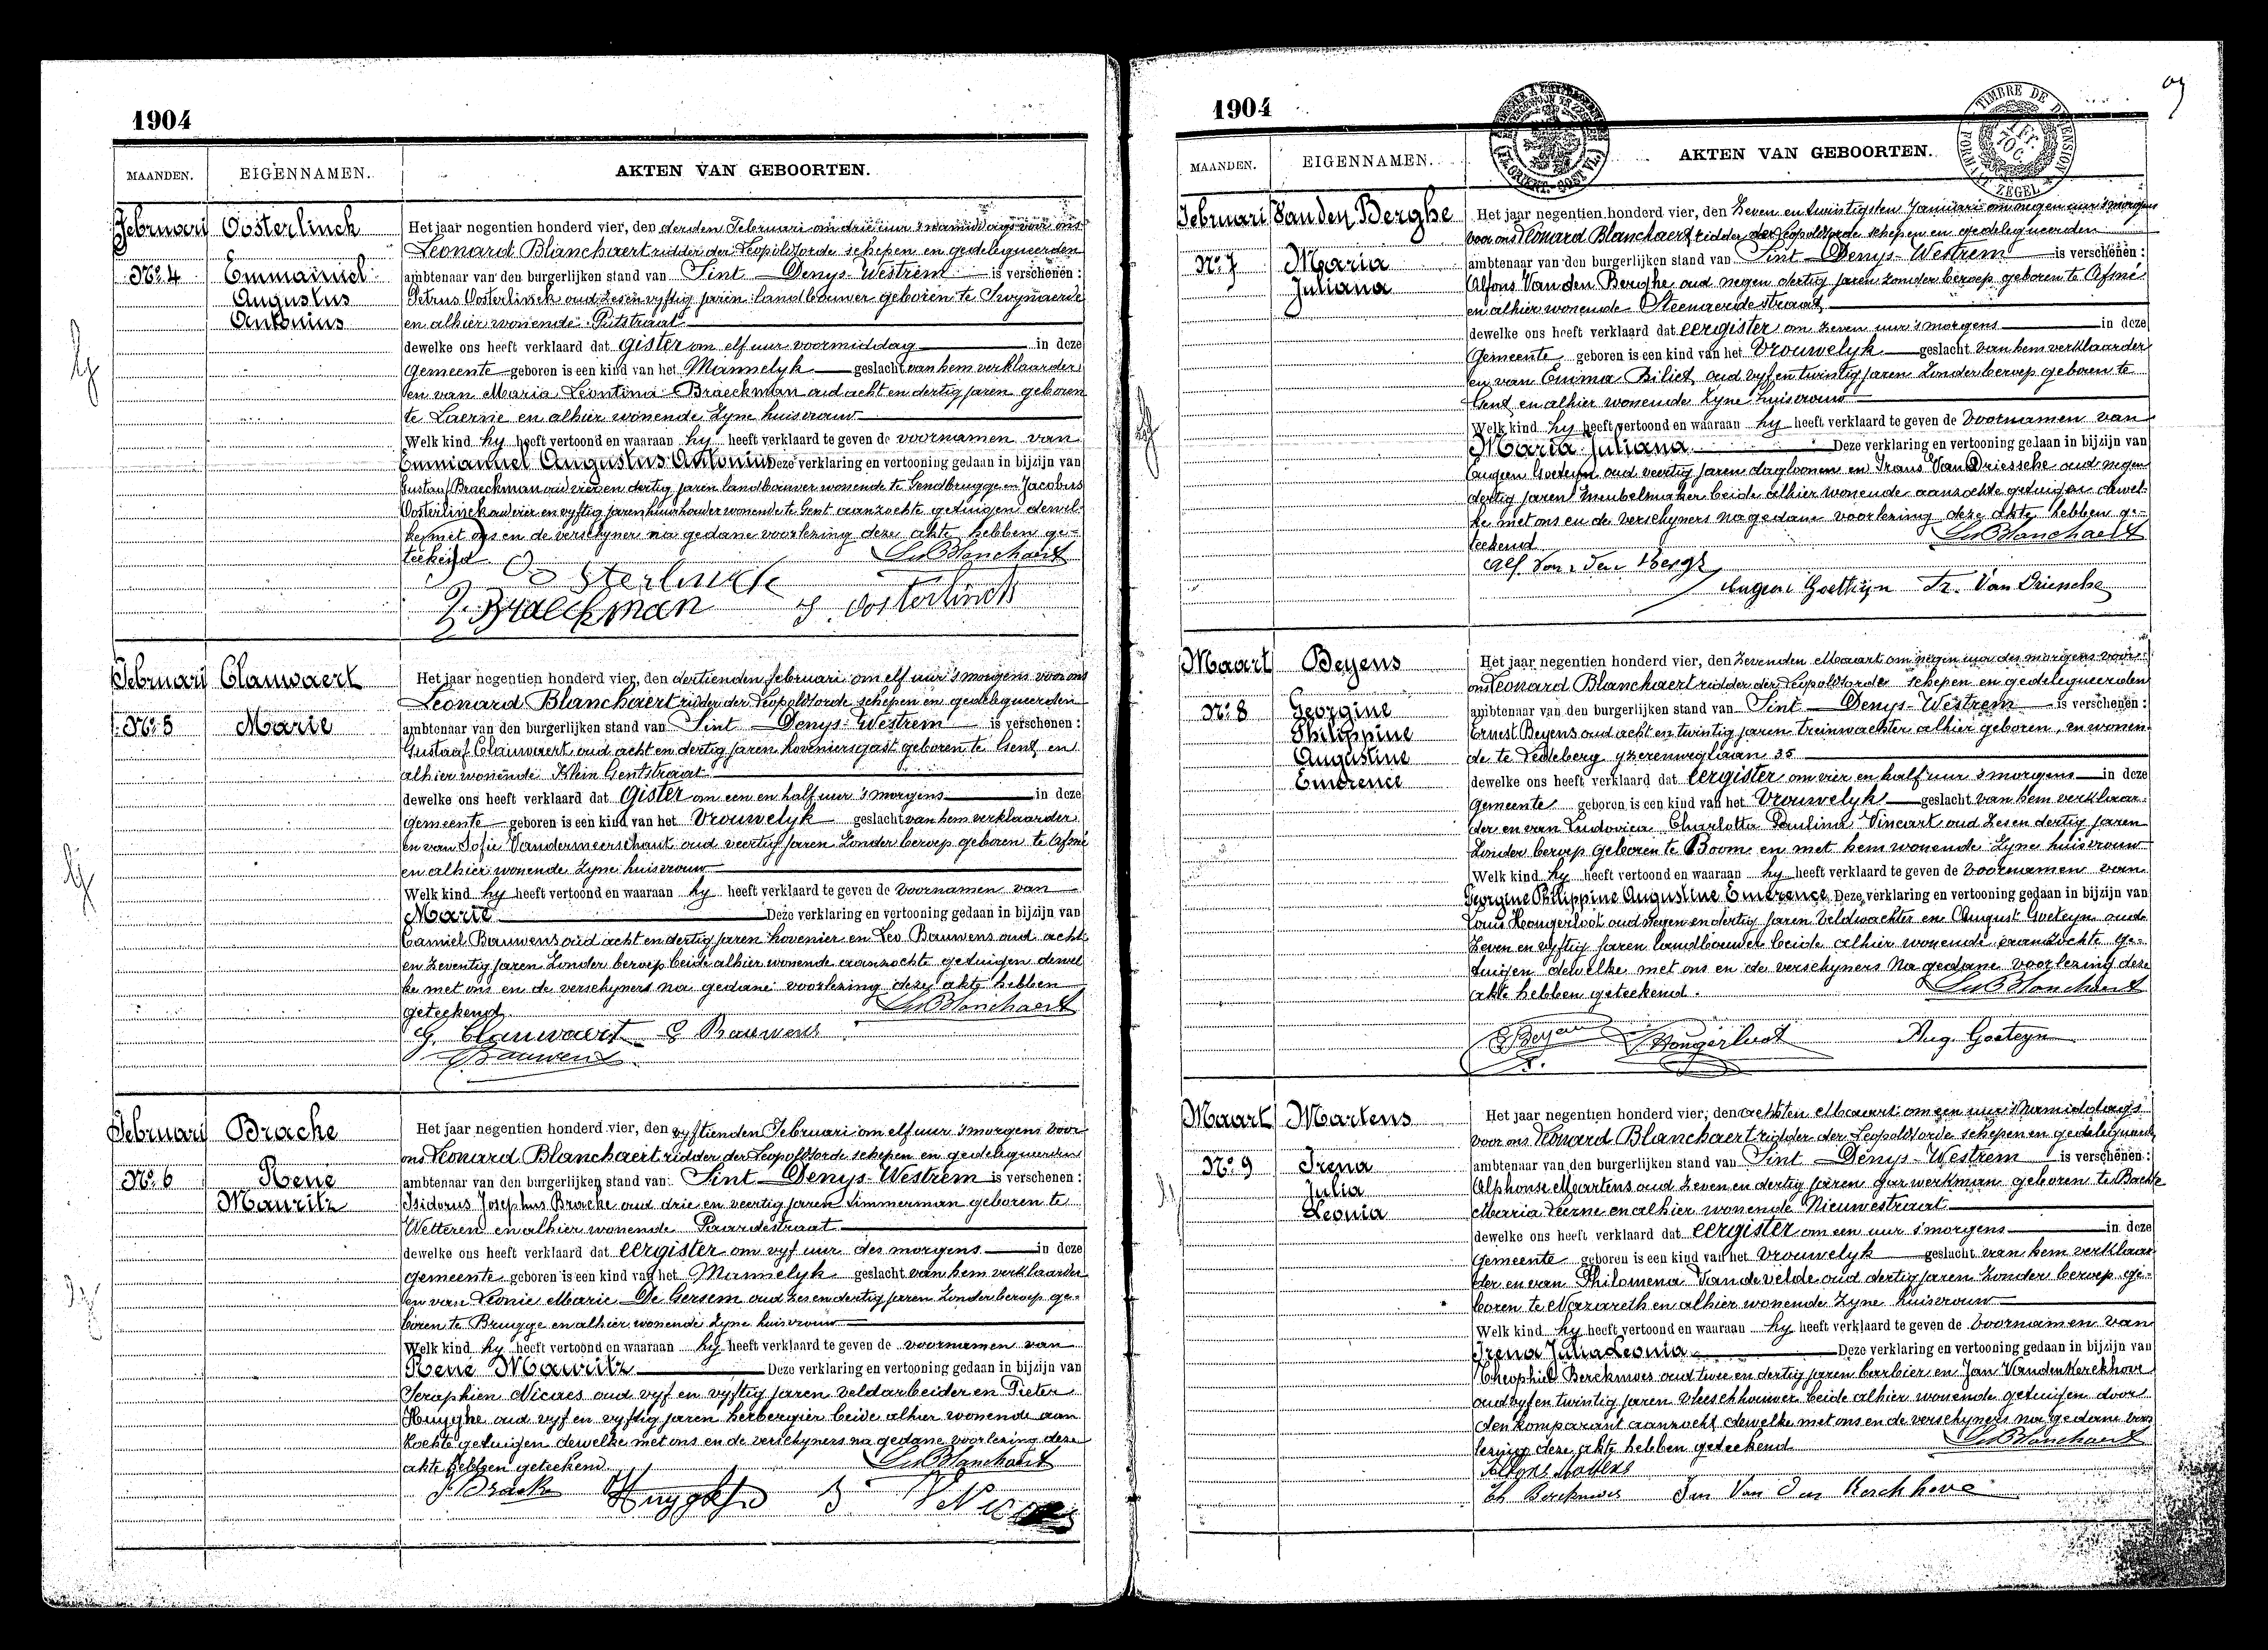 1904
MAANDEN. EIGENNAMEN. AKTEN VAN GEBOORTEN.
Februari Oosterlinck
Nº 4 Emmanuel
Augustus
Antonius
Het jaar negentien honderd vier, den derden Februari om drie uur 's namiddags voor ons
Leonard Blanchaert ridder der Leopoldsorde schepen en gedelegueerden
ambtenaar van den burgerlijken stand van Sint Denys-Westrem is verschenen :
Petrus Oosterlinck oud zes en vyftig jaren landbouwer geboren te Swynaerde
en alhier wonende Putstraat
dewelke ons heeft verklaard dat gister om elf uur voormiddag in deze
Gemeente geboren is een kind van het Mannelyk geslacht van hem verklaarder
en van Maria Leontina Braeckman oud acht en dertig jaren geboren
te Laerne en alhier wonende zyne huisvrouw
Welk kind hy heeft vertoond en waaraan hy heeft verklaard te geven de voornamen van
Emmanuel Augustus Antonius Deze verklaring en vertooning gedaan in bijzijn van
Gustaaf Braeckman oud vier en dertig jaren landbouwer wonende te Gendbrugge en Jacobus
Oosterlinck oud vier en vyftig jaren huurhouder wonende te Gent aanzochte getuigen dewel-
ke met ons en de verschyner na gedane voorlezing deze akte hebben ge-
teekend Ld Blanchaert
Oosterlinck
G. Braeckman J. Oosterlinck
Februari Clauwaert
Nº 5 Marie
Het jaar negentien honderd vier, den dertienden februari om elf uur 's morgens voor ons
Leonard Blanchaert ridder der Leopoldsorde schepen en gedelegueerden
ambtenaar van den burgerlijken stand van Sint Denys-Westrem is verschenen :
Gustaaf Clauwaert oud acht en dertig jaren hoveniersgast geboren te Gent en
alhier wonende Klein Gentstraat
dewelke ons heeft verklaard dat gister om een en half uur 's morgens in deze
gemeente geboren is een kind van het Vrouwelyk geslacht van hem verklaarder
en van Sofie Vandermeerschaut oud veertig jaren zonder beroep geboren te Afsné
en alhier wonende zyne huisvrouw
Welk kind hy heeft vertoond en waaraan hy heeft verklaard te geven de voornamen van
Marie Deze verklaring en vertooning gedaan in bijzijn van
Camiel Bauwens oud acht en dertig jaren hovenier en Leo Bauwens oud acht
en zeventig jaren zonder beroep beide alhier wonende aanzochte getuigen dewel
ke met ons en de verschyners na gedane voorlezing deze akte hebben
geteekend Ld Blanchaert
G. Clauwaert C Bauwens
Bauwens
Februari Bracke
Nº 6 René
Mauritz
Het jaar negentien honderd vier, den vyftienden Februari om elf uur 's morgens voor
ons Leonard Blanchaert ridder der Leopoldsorde schepen en gedelegueerden
ambtenaar van den burgerlijken stand van Sint Denys-Westrem is verschenen :
Isidorus Josephus Bracke oud drie en veertig jaren timmerman geboren te
Wetteren en alhier wonende Paardestraat
dewelke ons heeft verklaard dat eergister om vyf uur des morgens in deze
gemeente geboren is een kind van het Mannelyk geslacht van hem verklaarder
en van Leonie Marie De Gersem oud zes en dertig jaren zonder beroep ge-
boren te Brugge en alhier wonende zyne huisvrouw
Welk kind hy heeft vertoond en waaraan hy heeft verklaard te geven de voornamen van
René Mauritz Deze verklaring en vertooning gedaan in bijzijn van
Seraphien Nicaes oud vyf en vyftig jaren veldarbeider en Pieter
Huyghe oud vyf en vyftig jaren herbergier beide alhier wonende aan
zochte getuigen dewelke met ons en de verschyners na gedane voorlezing deze
akte hebben geteekend Ld Blanchaert
J Bracke Huyghe
1904
MAANDEN. EIGENNAMEN. AKTEN VAN GEBOORTEN.
TIMBRE DE DIMENSION
ZEGEL
Februari Van den Berghe
Nº 7 Maria
Juliana
Het jaar negentien honderd vier, den zeven en twintigsten Januari om negen uur 's morgens
voor ons Leonard Blanchaert ridder der Leopoldsorde schepen en gedelegueerden
ambtenaar van den burgerlijken stand van Sint Denys-Westrem is verschenen :
Alfons Van den Berghe oud negen dertig jaren zonder beroep geboren te Afsné
en alhier wonende Steenaerdestraat
dewelke ons heeft verklaard dat eergister om zeven uur 's morgens in deze
Gemeente geboren is een kind van het Vrouwelyk geslacht van hem verklaarder
en van Emma Biliet oud vyf en twintig jaren zonder beroep geboren te
Gent en alhier wonende zyne huisvrouw
Welk kind hy heeft vertoond en waaraan hy heeft verklaard te geven de voornamen van
Maria Juliana Deze verklaring en vertooning gedaan in bijzijn van
Eugeen Goeteyn oud veertig jaren daglooner en Frans Van Driessche oud negen
dertig jaren meubelmaker beide alhier wonende aanzochte getuigen dewel-
ke met ons en de verschyners na gedane voorlezing deze akte hebben ge-
teekend Ld Blanchaert
Alf Van den Bergh
Eugeen Goethyn Fr. Van Driessche
Maart Beyens
Nº 8 Georgine
Philippine
Augustine
Emerence
Het jaar negentien honderd vier, den zevenden Maart om negen uur des morgens voor
ons Leonard Blanchaert ridder der Leopoldsorder schepen en gedelegueerden
ambtenaar van den burgerlijken stand van Sint Denys-Westrem is verschenen :
Ernest Beyens oud acht en twintig jaren treinwachter alhier geboren, en wonen-
de te Ledeberg yzerenweglaan 35
dewelke ons heeft verklaard dat eergister om vier en half uur 's morgens in deze
gemeente geboren is een kind van het Vrouwelyk geslacht van hem verklaar-
der en van Ludovica Charlotta Paulina Vincart oud zes en dertig jaren
zonder beroep geboren te Boom en met hem wonende zyne huisvrouw
Welk kind hy heeft vertoond en waaraan hy heeft verklaard te geven de voornamen van
Georgine Philippine Augustine Emerence Deze verklaring en vertooning gedaan in bijzijn van
Louis Hongerloot oud negen en dertig jaren veldwachter en August Goeteyn oud
zeven en vyftig jaren landbouwer beide alhier wonende aanzochte ge-
tuigen dewelke met ons en de verschyners na gedane voorlezing deze
akte hebben geteekend. Ld Blanchaert
E Beyens L. Hongerloot Aug. Goeteyn
Maart Martens
Nº 9 Irena
Julia
Leonia
Het jaar negentien honderd vier, den achtsten Maart om een uur 's namiddags
voor ons Leonard Blanchaert ridder der Leopoldsorde schepen en gedelegueerd
ambtenaar van den burgerlijken stand van Sint Denys-Westrem is verschenen :
Alphonse Martens oud zeven en dertig jaren gazwerkman geboren te Bachte
Maria Leerne en alhier wonende Nieuwestraat
dewelke ons heeft verklaard dat eergister om een uur 's morgens in deze
gemeente geboren is een kind van het Vrouwelyk geslacht van hem verklaar
der en van Philomena Van de velde oud dertig jaren zonder beroep ge-
boren te Nazareth en alhier wonende zyne huisvrouw
Welk kind hy heeft vertoond en waaraan hy heeft verklaard te geven de voornamen van
Irena Julia Leonia Deze verklaring en vertooning gedaan in bijzijn van
Theophiel Berckmoes oud twee en dertig jaren barbier en Jan Vanden Kerckhove
oud vyf en twintig jaren vleeschhouwer beide alhier wonende getuigen door
den komparant aanzocht dewelke met ons en de verschyners na gedane voor
lezing deze akte hebben geteekend Ld Blanchaert
Alfons Martens
Th Berckmoes Jan Van den Kerckhove